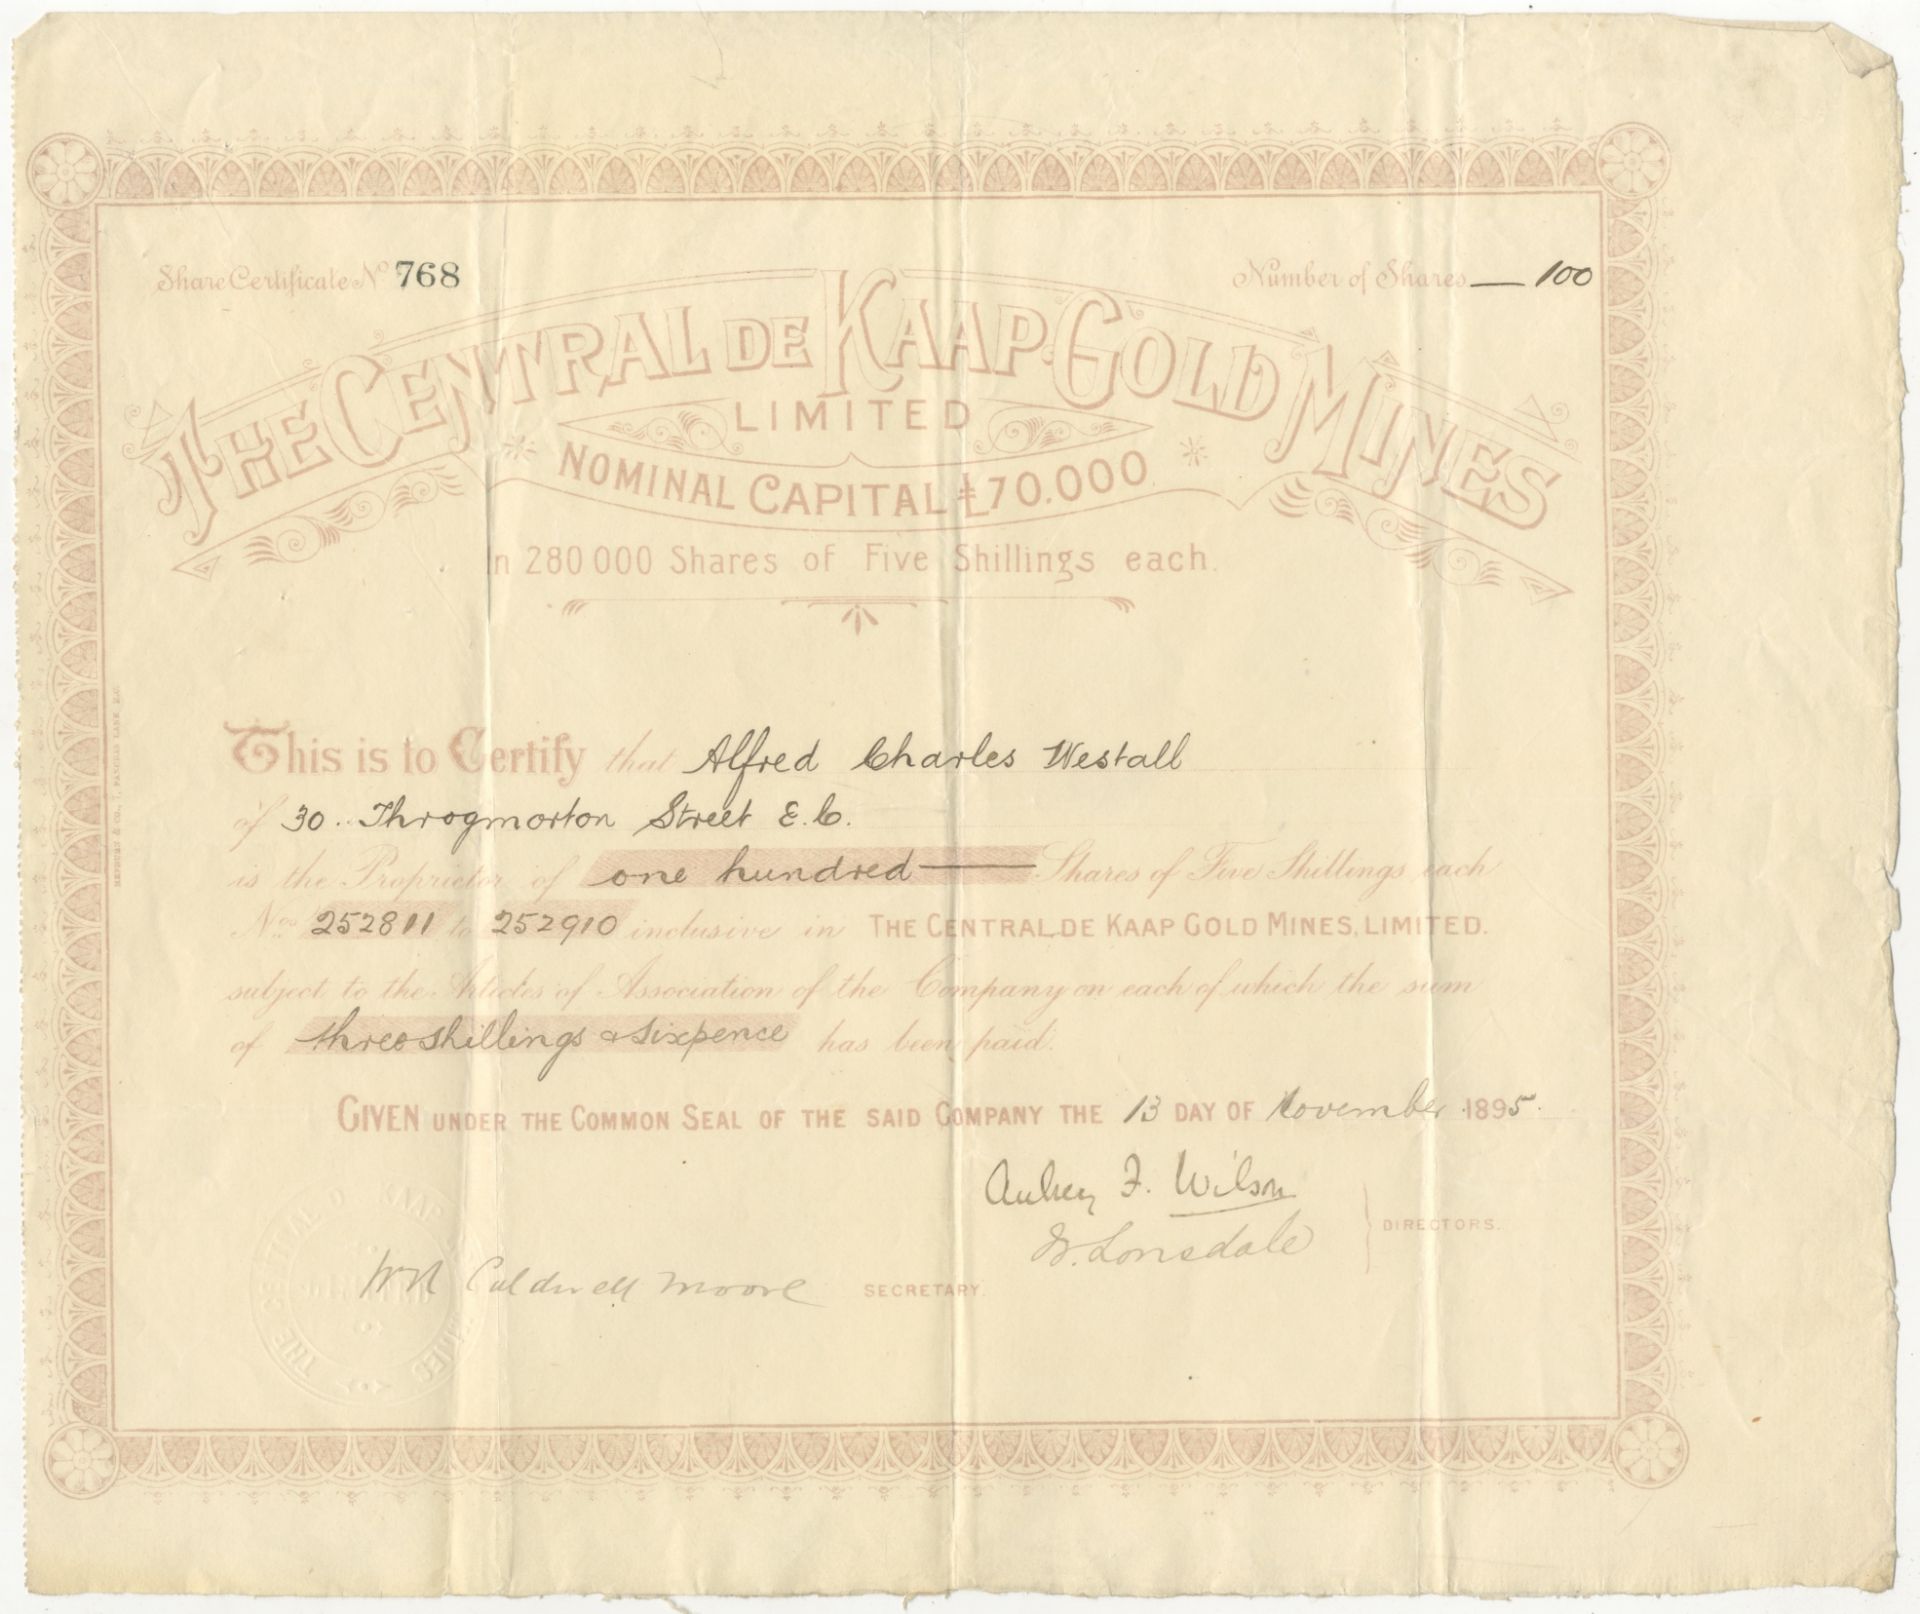 Share Certificate No 768
Number of Shares — 100
THE CENTRAL DE KAAP GOLD MINES
LIMITED
NOMINAL CAPITAL £70.000
In 280 000 Shares of Five Shillings each.
This is to Certify that Alfred Charles Westall
of 30. Throgmorton Street E.C.
is the Proprietor of one hundred — Shares of Five Shillings each
Nos 252811 to 252910 inclusive in THE CENTRAL DE KAAP GOLD MINES, LIMITED.
subject to the Articles of Association of the Company on each of which the sum
of three shillings & sixpence has been paid.
GIVEN UNDER THE COMMON SEAL OF THE SAID COMPANY THE 13 DAY OF November 1895.
Aubrey F. Wilson
Lonsdale
DIRECTORS.
Caldwell Moore SECRETARY.
THE CENTRAL DE KAAP GOLD MINES
LIMITED